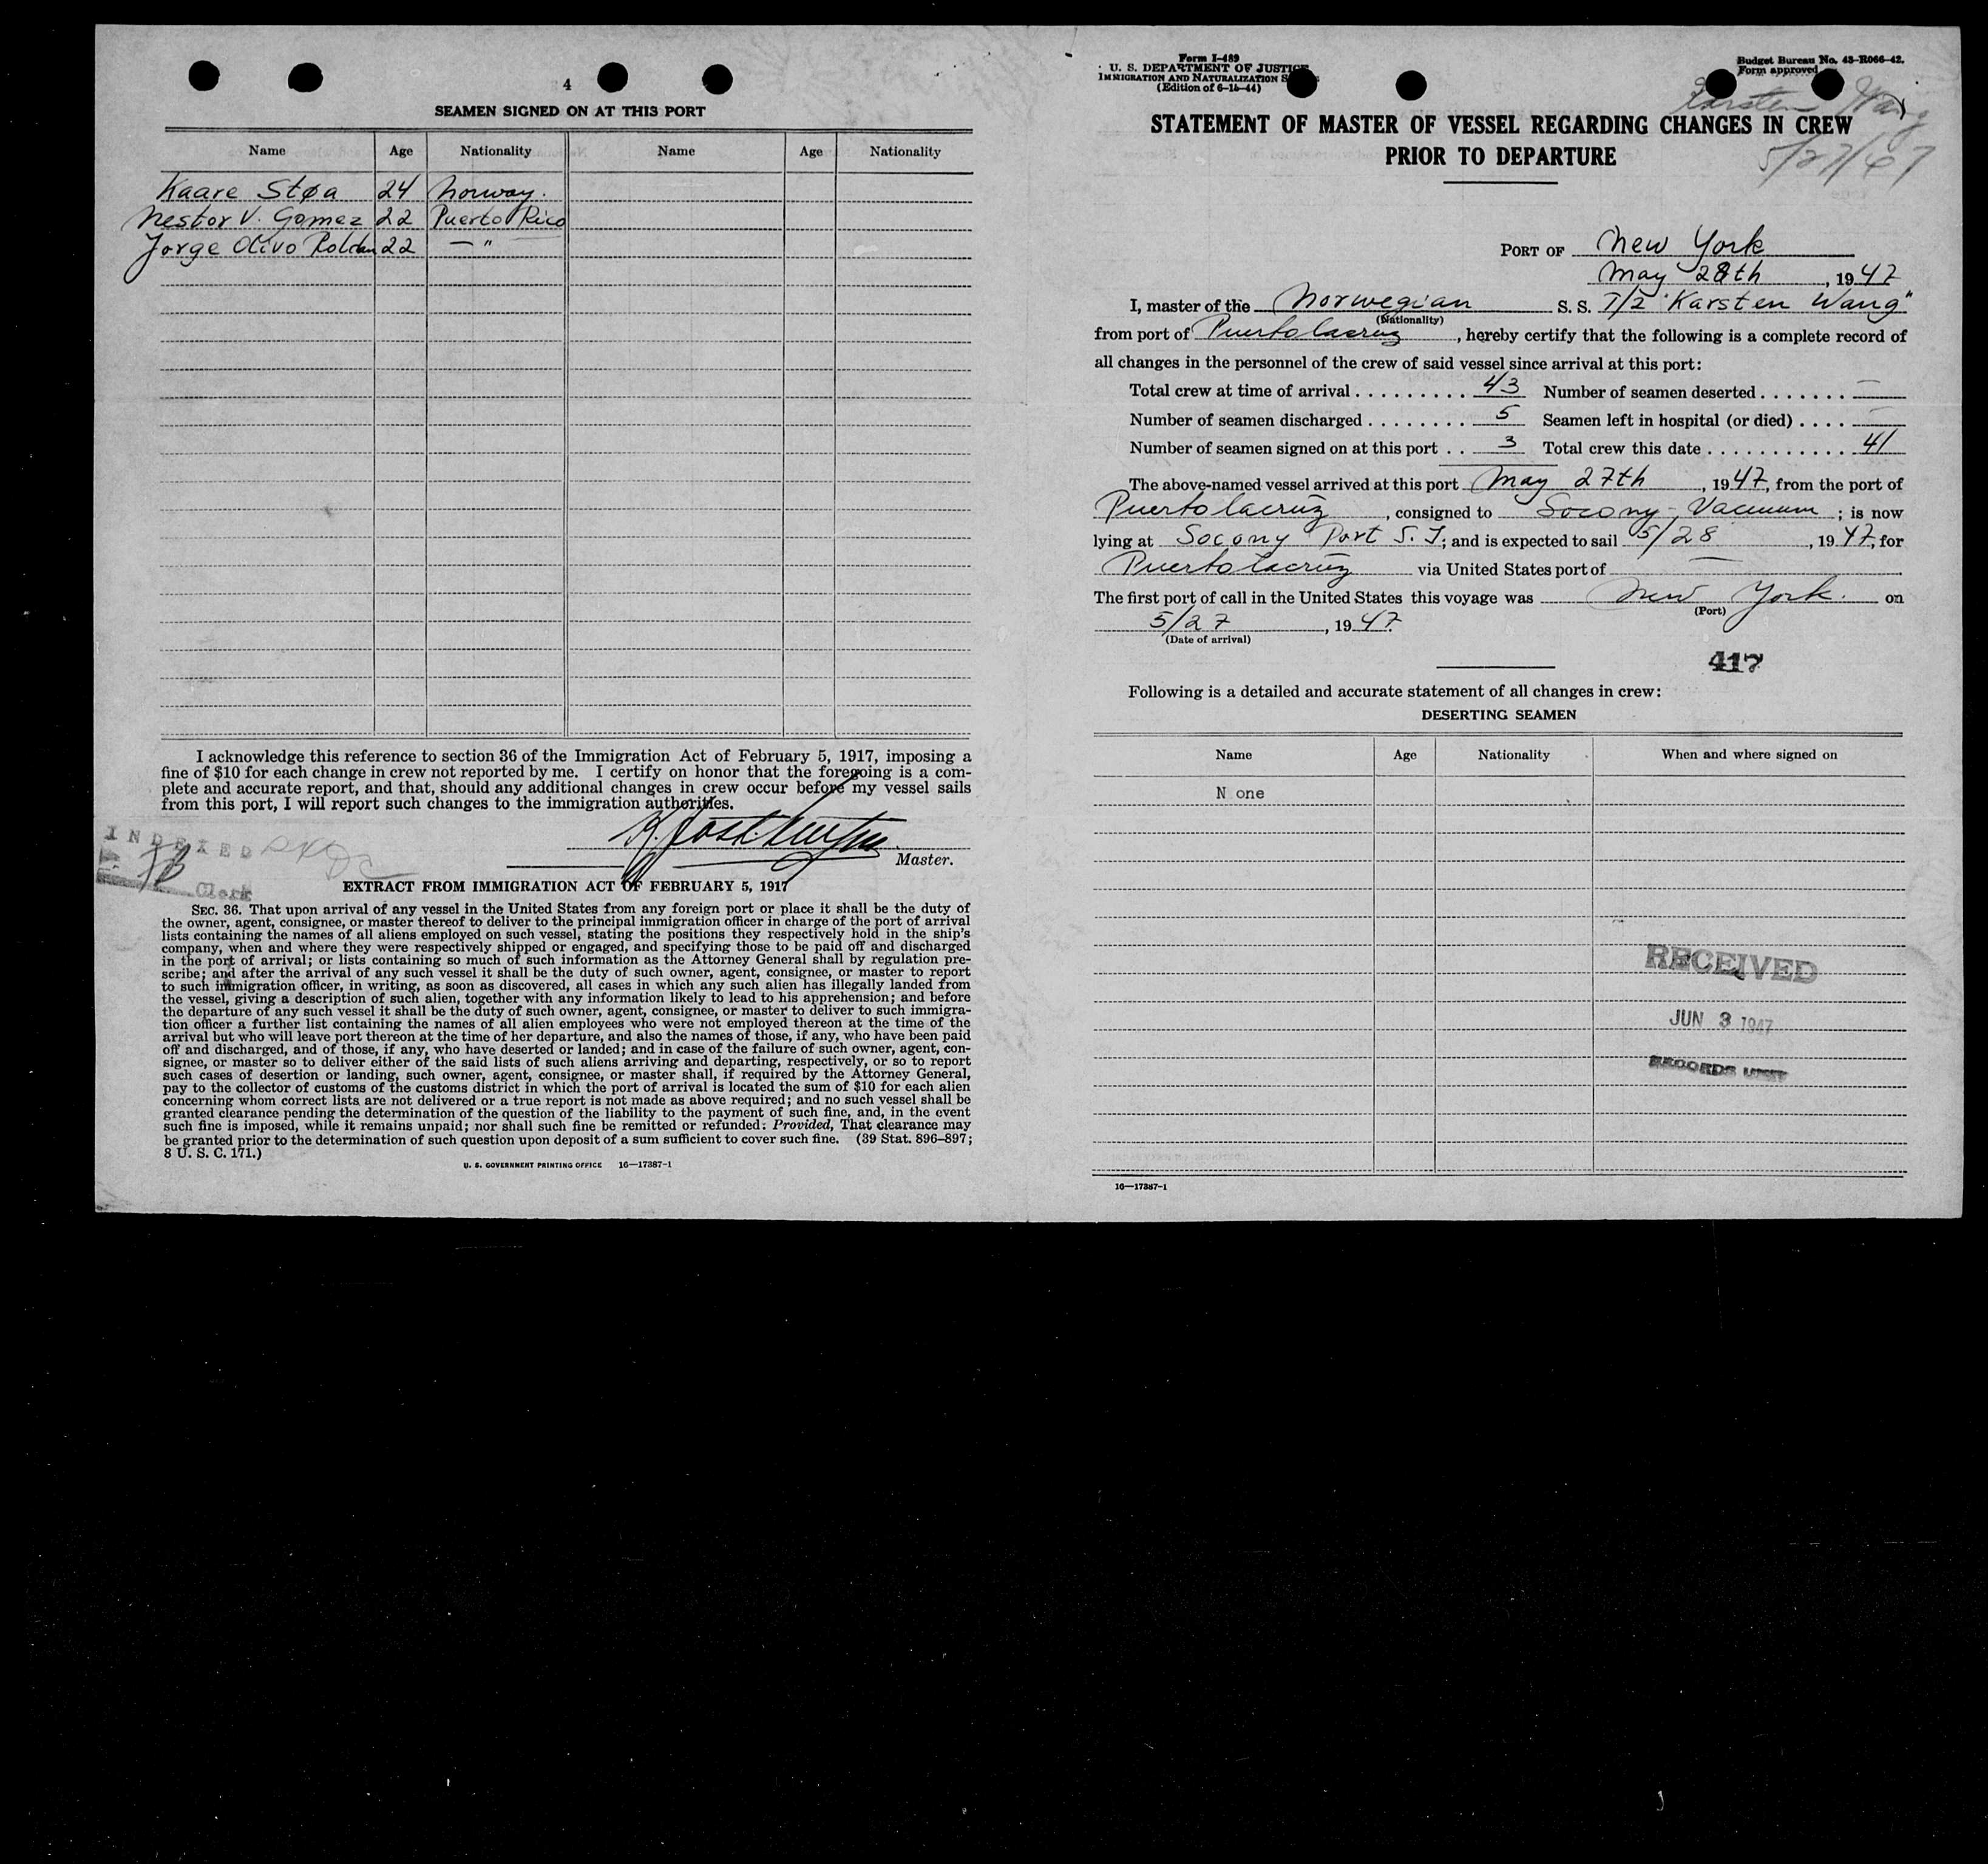 4
SEAMEN SIGNED ON AT THIS PORT
Name Age Nationality Name Age Nationality
Kaare Støa 24 Norway.
Nestor V. Gomez 22 Puerto Rico
Jorge Olivo Roldan 22 — " —
I acknowledge this reference to section 36 of the Immigration Act of February 5, 1917, imposing a
fine of $10 for each change in crew not reported by me. I certify on honor that the foregoing is a com-
plete and accurate report, and that, should any additional changes in crew occur before my vessel sails
from this port, I will report such changes to the immigration authorities.
Master.
INDEXED
Clerk
EXTRACT FROM IMMIGRATION ACT OF FEBRUARY 5, 1917
SEC. 36. That upon arrival of any vessel in the United States from any foreign port or place it shall be the duty of
the owner, agent, consignee, or master thereof to deliver to the principal immigration officer in charge of the port of arrival
lists containing the names of all aliens employed on such vessel, stating the positions they respectively hold in the ship's
company, when and where they were respectively shipped or engaged, and specifying those to be paid off and discharged
in the port of arrival; or lists containing so much of such information as the Attorney General shall by regulation pre-
scribe; and after the arrival of any such vessel it shall be the duty of such owner, agent, consignee, or master to report
to such immigration officer, in writing, as soon as discovered, all cases in which any such alien has illegally landed from
the vessel, giving a description of such alien, together with any information likely to lead to his apprehension; and before
the departure of any such vessel it shall be the duty of such owner, agent, consignee, or master to deliver to such immigra-
tion officer a further list containing the names of all alien employees who were not employed thereon at the time of the
arrival but who will leave port thereon at the time of her departure, and also the names of those, if any, who have been paid
off and discharged, and of those, if any, who have deserted or landed; and in case of the failure of such owner, agent, con-
signee, or master so to deliver either of the said lists of such aliens arriving and departing, respectively, or so to report
such cases of desertion or landing, such owner, agent, consignee, or master shall, if required by the Attorney General,
pay to the collector of customs of the customs district in which the port of arrival is located the sum of $10 for each alien
concerning whom correct lists are not delivered or a true report is not made as above required; and no such vessel shall be
granted clearance pending the determination of the question of the liability to the payment of such fine, and, in the event
such fine is imposed, while it remains unpaid; nor shall such fine be remitted or refunded: Provided, That clearance may
be granted prior to the determination of such question upon deposit of a sum sufficient to cover such fine. (39 Stat. 896–897;
8 U. S. C. 171.)
U. S. GOVERNMENT PRINTING OFFICE 16—17387-1
Form I-489
U. S. DEPARTMENT OF JUSTICE
IMMIGRATION AND NATURALIZATION
(Edition of 6-15-44)
Budget Bureau No. 43-R066-42.
Form approved
Karsten Wang
5/27/47
STATEMENT OF MASTER OF VESSEL REGARDING CHANGES IN CREW
PRIOR TO DEPARTURE
PORT OF New York
May 28th, 1947
I, master of the Norwegian S. S. T/2 "Karsten Wang"
(Nationality)
from port of Puerto lacruz, hereby certify that the following is a complete record of
all changes in the personnel of the crew of said vessel since arrival at this port:
Total crew at time of arrival . . . . . . . . . 43 Number of seamen deserted . . . . . . . —
Number of seamen discharged . . . . . . . . 5 Seamen left in hospital (or died) . . . . —
Number of seamen signed on at this port . . 3 Total crew this date . . . . . . . . . . . . 41
The above-named vessel arrived at this port May 27th, 1947, from the port of
Puerto lacruz, consigned to Socony-Vacuum; is now
lying at Socony Port S. I; and is expected to sail 5/28, 1947, for
Puerto lacruz via United States port of —
The first port of call in the United States this voyage was New York. on
(Port)
5/27, 1947.
(Date of arrival)
417
Following is a detailed and accurate statement of all changes in crew:
DESERTING SEAMEN
Name Age Nationality When and where signed on
N one
RECEIVED
JUN 3 1947
RECORDS UNIT
16—17387-1